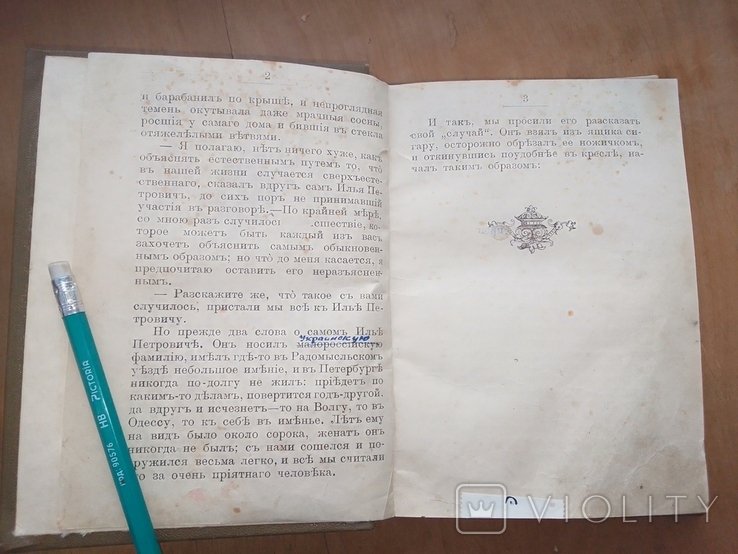 2
и барабанилъ по крышѣ, и непроглядная
темень окутывала даже мрачныя сосны,
росшія у самаго дома и бившія въ стекла
отяжелѣлыми вѣтвями.
— Я полагаю, нѣтъ ничего хуже, какъ
объяснять естественнымъ путемъ то, что
въ нашей жизни случается сверхъесте-
ственнаго, сказалъ вдругъ самъ Илья Пе-
тровичъ, до сихъ поръ не принимавшій
участія въ разговорѣ.—По крайней мѣрѣ,
со мною разъ случилось шествіе, ко-
торое можетъ быть каждый изъ васъ
захочетъ объяснить самымъ обыкновен-
нымъ образомъ; но что̀ до меня касается, я
предпочитаю оставить его неразъяснен-
нымъ.
— Разскажите же, что̀ такое съ вами
случилось, пристали мы всѣ къ Ильѣ Пе-
тровичу.
Но прежде два слова о самомъ Ильѣ
Петровичѣ. Онъ носилъ малороссійскую
украінскую
фамилію, имѣлъ гдѣ-то въ Радомысльскомъ
уѣздѣ небольшое имѣніе, и въ Петербургѣ
никогда по-долгу не жилъ: пріѣдетъ по
какимъ-то дѣламъ, повертится годъ-другой,
да вдругъ и исчезнетъ—то на Волгу, то въ
Одессу, то къ себѣ въ имѣнье. Лѣтъ ему
на видъ было около сорока, женатъ онъ
никогда не былъ; съ нами сошелся и по-
дружился весьма легко, и всѣ мы считали
го за очень пріятнаго человѣка.
3
И такъ, мы просили его разсказать
свой „случай“. Онъ взялъ изъ ящика си-
гару, осторожно обрѣзалъ ее ножичкомъ,
и откинувшись поудобнѣе въ креслѣ, на-
чалъ такимъ образомъ:
ГРА 90576 HB PICTORIA
VIOLITY